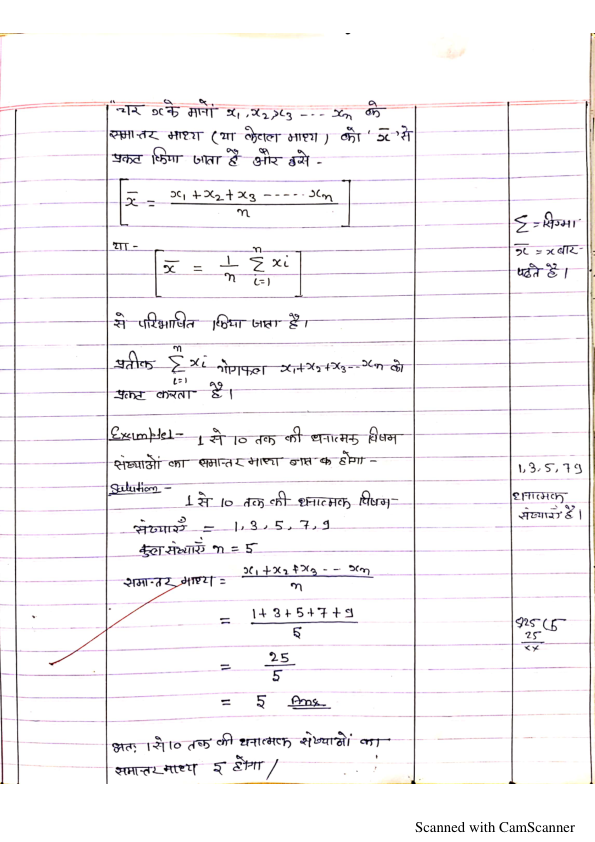 "चर x के मानों x₁, x₂, x₃ --- xₙ के
समान्तर माध्य (या केवल माध्य) को 'x̅' से
प्रकट किया जाता है और इसे -
x̅ = (x₁ + x₂ + x₃ ----- xₙ)/n
या -
x̅ = 1/n ∑ᵢ₌₁ⁿ xi
से परिभाषित किया जाता है।
प्रतीक ∑ᵢ₌₁ⁿ xi योगफल x₁+x₂+x₃--xₙ को
प्रकट करता है।
Example1- 1 से 10 तक की धनात्मक विषम
संख्याओं का समान्तर माध्य होगा -
Solution -
1 से 10 तक की धनात्मक विषम-
संख्याएँ = 1, 3, 5, 7, 9
कुल संख्याएँ n = 5
समान्तर माध्य = (x₁+x₂+x₃--xₙ)/n
= (1+3+5+7+9)/5
= 25/5
= 5 Ans
अतः 1 से 10 तक की धनात्मक संख्याओं का
समान्तर माध्य 5 होगा /
∑ = सिग्मा
x̅ = x बार-
पढ़ते है।
1, 3, 5, 7 9
धनात्मक
संख्याएँ है।
25 (5
25
××
Scanned with CamScanner